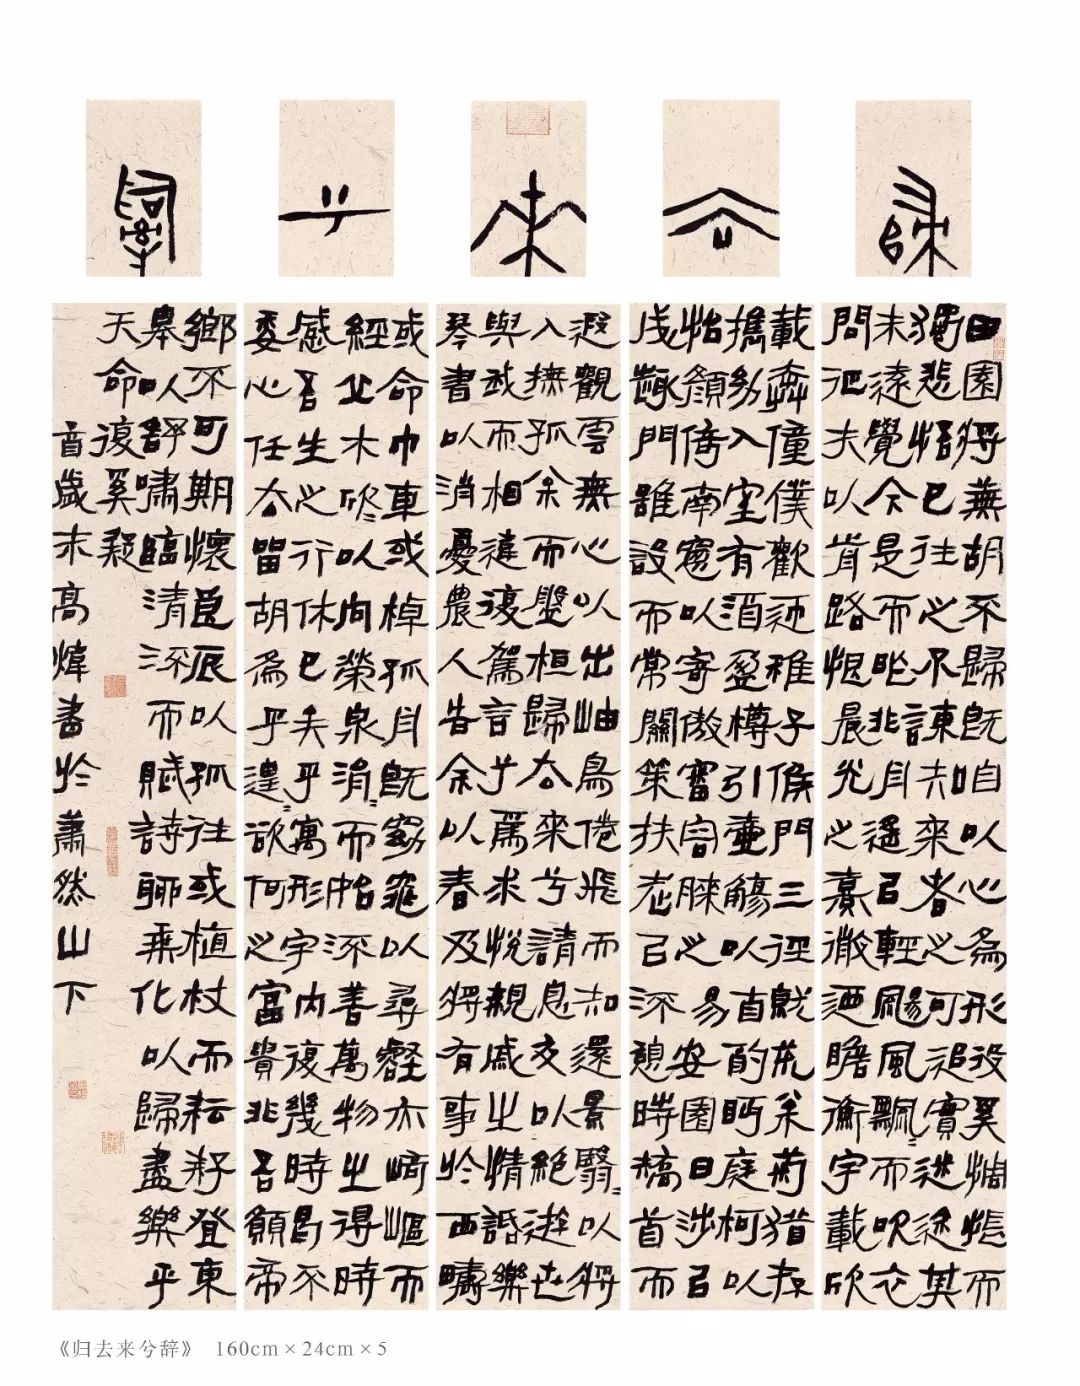 歸
去
來
兮
辭
田園將蕪胡不歸既自以心為形役奚惆悵而
獨悲悟已往之不諫知來者之可追實迷途其
未遠覺今是而昨非舟遙以輕颺風飄飄而吹衣
問征夫以前路恨晨光之熹微迺瞻衡宇載欣
載奔僮僕歡迎稚子候門三徑就荒松菊猶存
攜幼入室有酒盈樽引壺觴以自酌眄庭柯以
怡顏倚南窗以寄傲審容膝之易安園日涉以
成趣門雖設而常關策扶老以流憩時矯首而
遐觀雲無心以出岫鳥倦飛而知還景翳翳以將
入撫孤松而盤桓歸去來兮請息交以絕遊世
與我而相違復駕言兮焉求悅親戚之情話樂
琴書以消憂農人告余以春及將有事於西疇
或命巾車或棹孤舟既窈窕以尋壑亦崎嶇而
經丘木欣以向榮泉涓涓而始流善萬物之得時
感吾生之行休已矣乎寓形宇內復幾時曷不
委心任去留胡為乎遑遑欲何之富貴非吾願帝
鄉不可期懷良辰以孤往或植杖而耘耔登東
皋以舒嘯臨清流而賦詩聊乘化以歸盡樂乎
天命復奚疑
歲末高煒書於蕭然山下
《归去来兮辞》 160cm×24cm×5